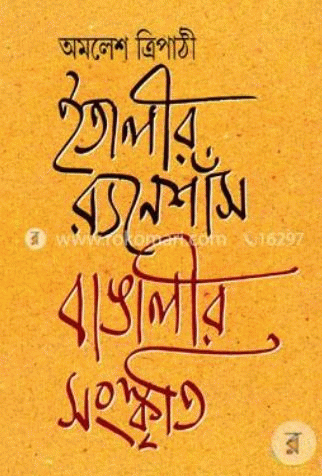 অমলেশ ত্রিপাঠী
ইতালীর
র‍্যনেশাঁস
www.rokomari.com 16297
বাঙালীর
সংস্কৃতি
র
র